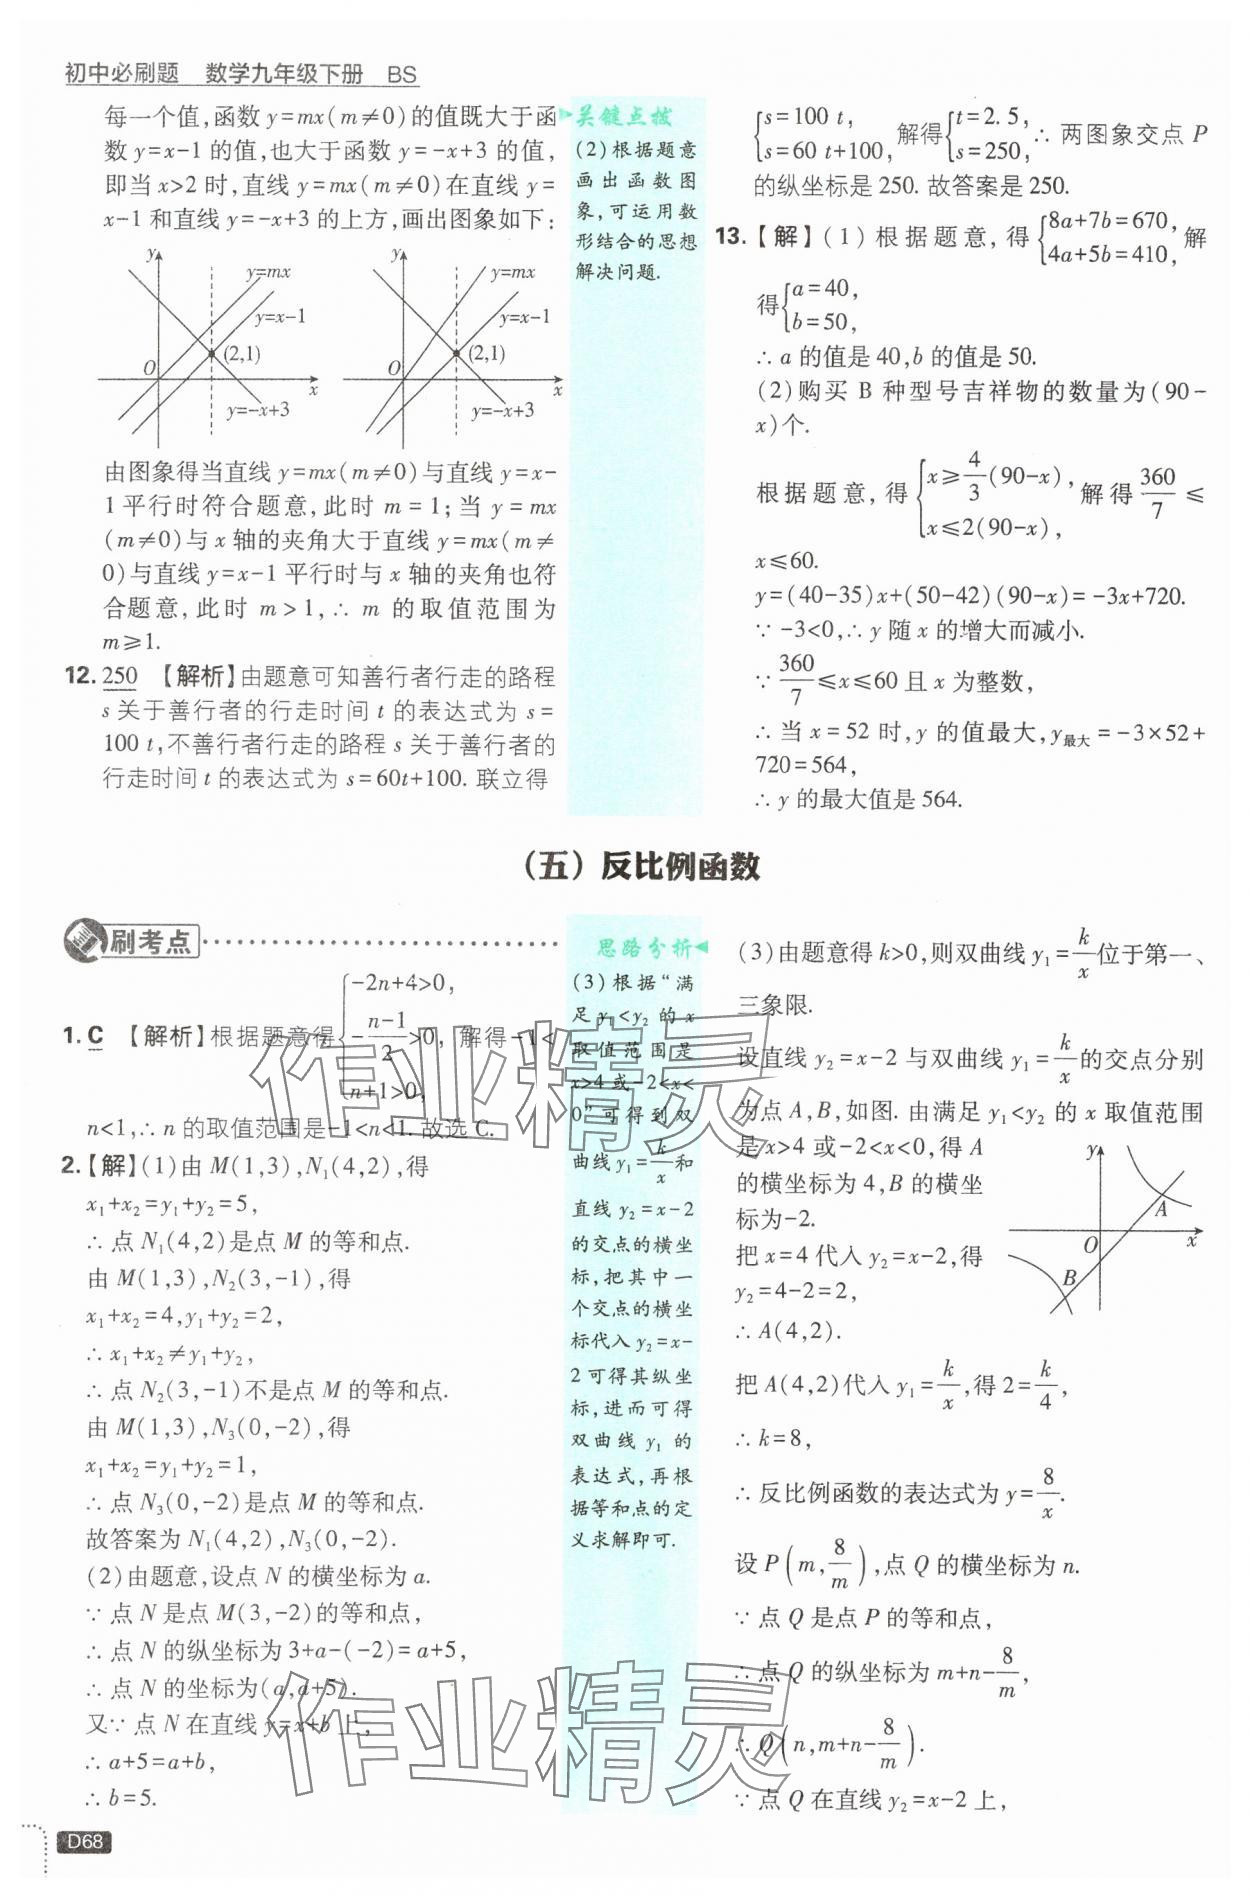 初中必刷题 数学九年级下册 BS
每一个值,函数 y=mx(m≠0)的值既大于函
数 y=x-1 的值,也大于函数 y=-x+3 的值,
即当 x>2 时,直线 y=mx(m≠0)在直线 y=
x-1 和直线 y=-x+3 的上方,画出图象如下:
y y=mx y=x-1 (2,1) O x y=-x+3
y y=mx y=x-1 (2,1) O x y=-x+3
由图象得当直线 y=mx(m≠0)与直线 y=x-
1 平行时符合题意,此时 m=1;当 y=mx
(m≠0)与 x 轴的夹角大于直线 y=mx(m≠
0)与直线 y=x-1 平行时与 x 轴的夹角也符
合题意,此时 m>1,∴ m 的取值范围为
m≥1.
12. 250 【解析】由题意可知善行者行走的路程
s 关于善行者的行走时间 t 的表达式为 s=
100 t,不善行者行走的路程 s 关于善行者的
行走时间 t 的表达式为 s=60t+100. 联立得
关键点拨
(2)根据题意
画出函数图
象,可运用数
形结合的思想
解决问题.
{s=100 t, s=60 t+100, 解得{t=2.5, s=250, ∴ 两图象交点 P
的纵坐标是 250. 故答案是 250.
13.【解】(1)根据题意,得{8a+7b=670, 4a+5b=410, 解
得{a=40, b=50,
∴ a 的值是 40,b 的值是 50.
(2)购买 B 种型号吉祥物的数量为(90-
x)个.
根据题意,得{x≥4/3(90-x), x≤2(90-x), 解得 360/7 ≤
x≤60.
y=(40-35)x+(50-42)(90-x)=-3x+720.
∵ -3<0,∴ y 随 x 的增大而减小.
∵ 360/7≤x≤60 且 x 为整数,
∴ 当 x=52 时,y 的值最大,y最大=-3×52+
720=564,
∴ y 的最大值是 564.
(五)反比例函数
刷考点
1. C 【解析】根据题意得{-2n+4>0, -(n-1)/2>0, n+1>0, 解得-1<
n<1,∴ n 的取值范围是-1<n<1. 故选 C.
2.【解】(1)由 M(1,3),N₁(4,2),得
x₁+x₂=y₁+y₂=5,
∴ 点 N₁(4,2)是点 M 的等和点.
由 M(1,3),N₂(3,-1),得
x₁+x₂=4,y₁+y₂=2,
∴ x₁+x₂≠y₁+y₂,
∴ 点 N₂(3,-1)不是点 M 的等和点.
由 M(1,3),N₃(0,-2),得
x₁+x₂=y₁+y₂=1,
∴ 点 N₃(0,-2)是点 M 的等和点.
故答案为 N₁(4,2),N₃(0,-2).
(2)由题意,设点 N 的横坐标为 a.
∵ 点 N 是点 M(3,-2)的等和点,
∴ 点 N 的纵坐标为 3+a-(-2)=a+5,
∴ 点 N 的坐标为(a,a+5).
又∵ 点 N 在直线 y=x+b 上,
∴ a+5=a+b,
∴ b=5.
思路分析
(3)根据“满
足 y₁<y₂ 的 x
取值范围是
x>4 或-2<x<
0”可得到双
曲线 y₁=k/x和
直线 y₂=x-2
的交点的横坐
标,把其中一
个交点的横坐
标代入 y₂=x-
2 可得其纵坐
标,进而可得
双曲线 y₁ 的
表达式,再根
据等和点的定
义求解即可.
(3)由题意得 k>0,则双曲线 y₁=k/x位于第一、
三象限.
设直线 y₂=x-2 与双曲线 y₁=k/x的交点分别
为点 A,B,如图. 由满足 y₁<y₂ 的 x 取值范围
是 x>4 或-2<x<0,得 A
的横坐标为 4,B 的横坐
标为-2.
把 x=4 代入 y₂=x-2,得
y₂=4-2=2,
∴ A(4,2).
y A O x B
把 A(4,2)代入 y₁=k/x,得 2=k/4,
∴ k=8,
∴ 反比例函数的表达式为 y=8/x.
设 P(m,8/m),点 Q 的横坐标为 n.
∵ 点 Q 是点 P 的等和点,
∴ 点 Q 的纵坐标为 m+n-8/m,
∴ Q(n,m+n-8/m).
∵ 点 Q 在直线 y₂=x-2 上,
作业精灵
作业精灵
D68